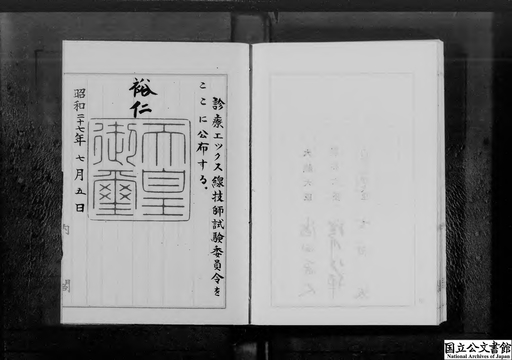 診療エックス線技師試験委員令を
ここに公布する。
裕仁
天皇
御璽
昭和二十七年七月五日
内閣
国立公文書館
National Archives of Japan